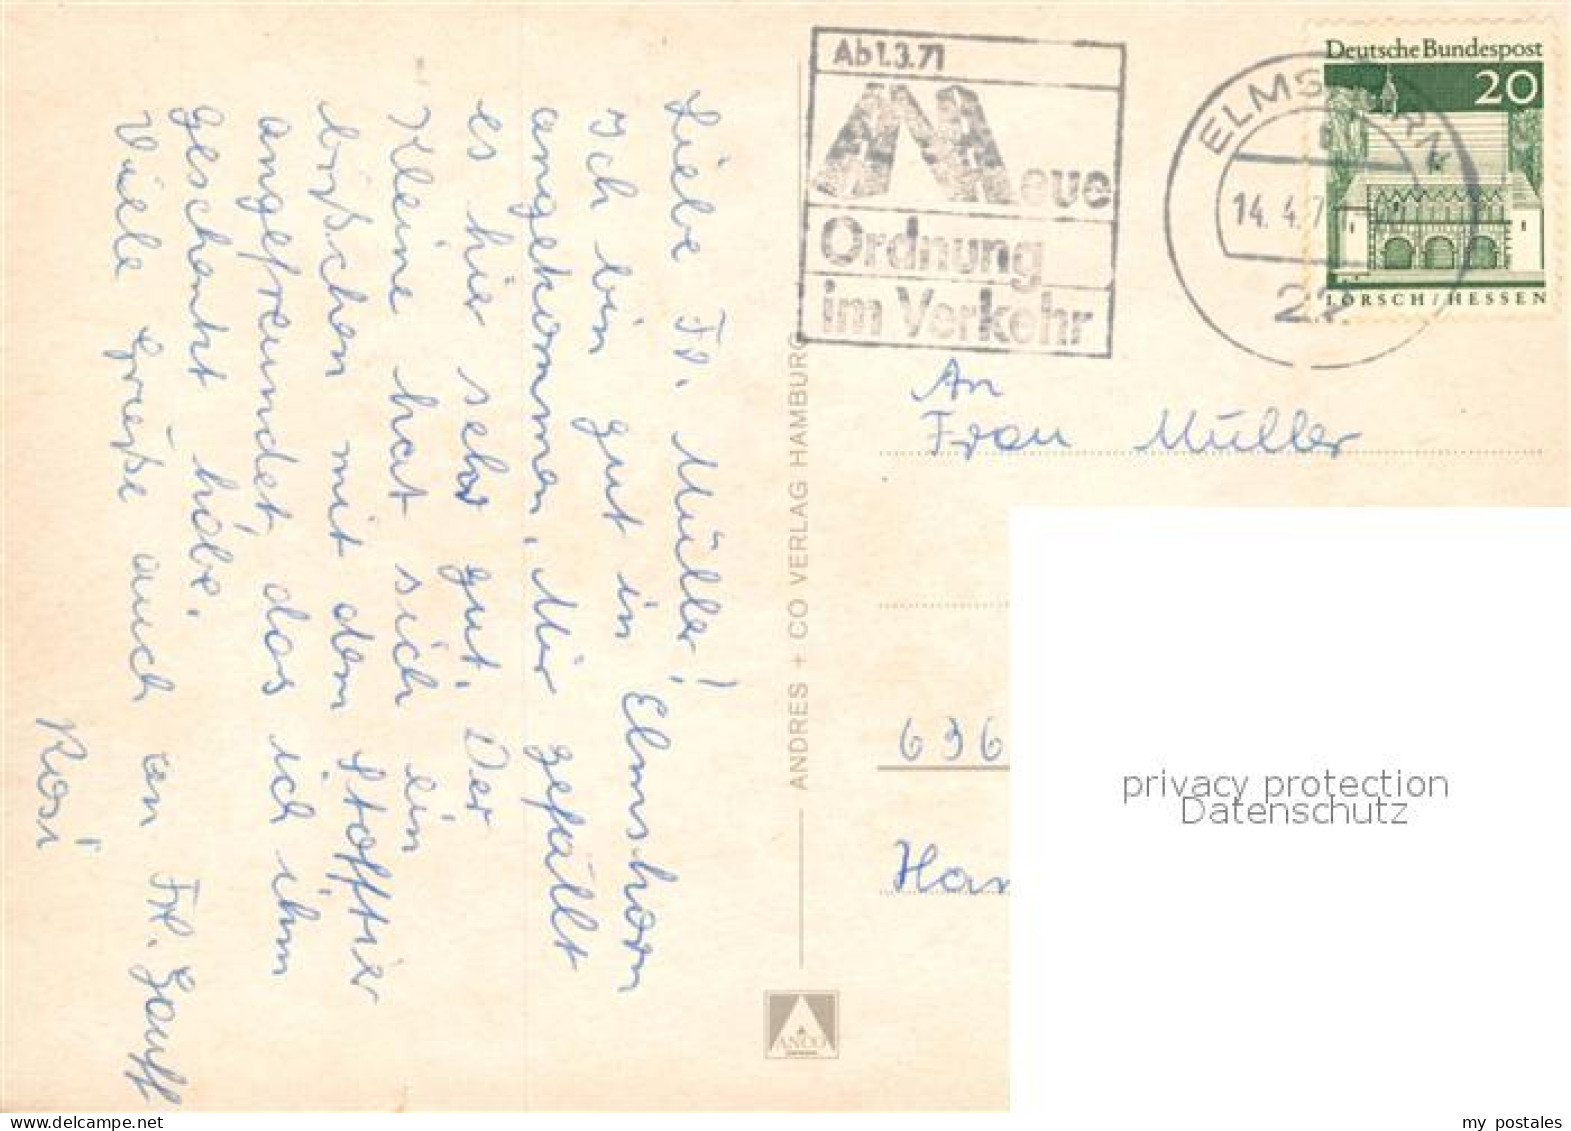 Liebe Fr. Müller!
Ich bin gut in Elmshorn
angekommen. Mir gefällt
es hier sehr gut. Der
Kleine hat sich ein
bißchen mit dem Stofftier
angefreundet, das ich ihm
geschenkt habe.
Viele Grüße auch an Frl. Hauff
Rosi
ANDRES + CO VERLAG HAMBURG
ANCO
Ab 1.3.71
Neue
Ordnung
im Verkehr
ELMSHORN
14. 4. 7
22
Deutsche Bundespost
20
LORSCH/HESSEN
An
Frau Müller
636
Han
privacy protection
Datenschutz
delcampe.net
my postales